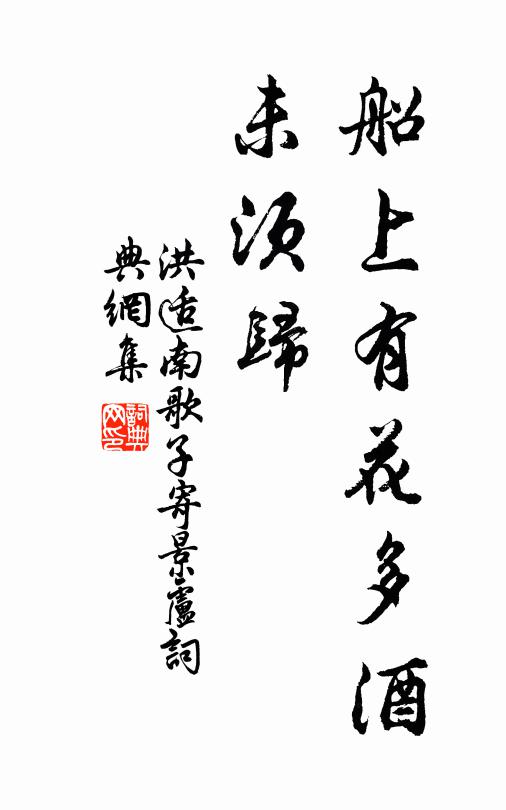 船上有花多酒
未須歸
洪适南歌子寄景盧詞
典網集
詞典网印